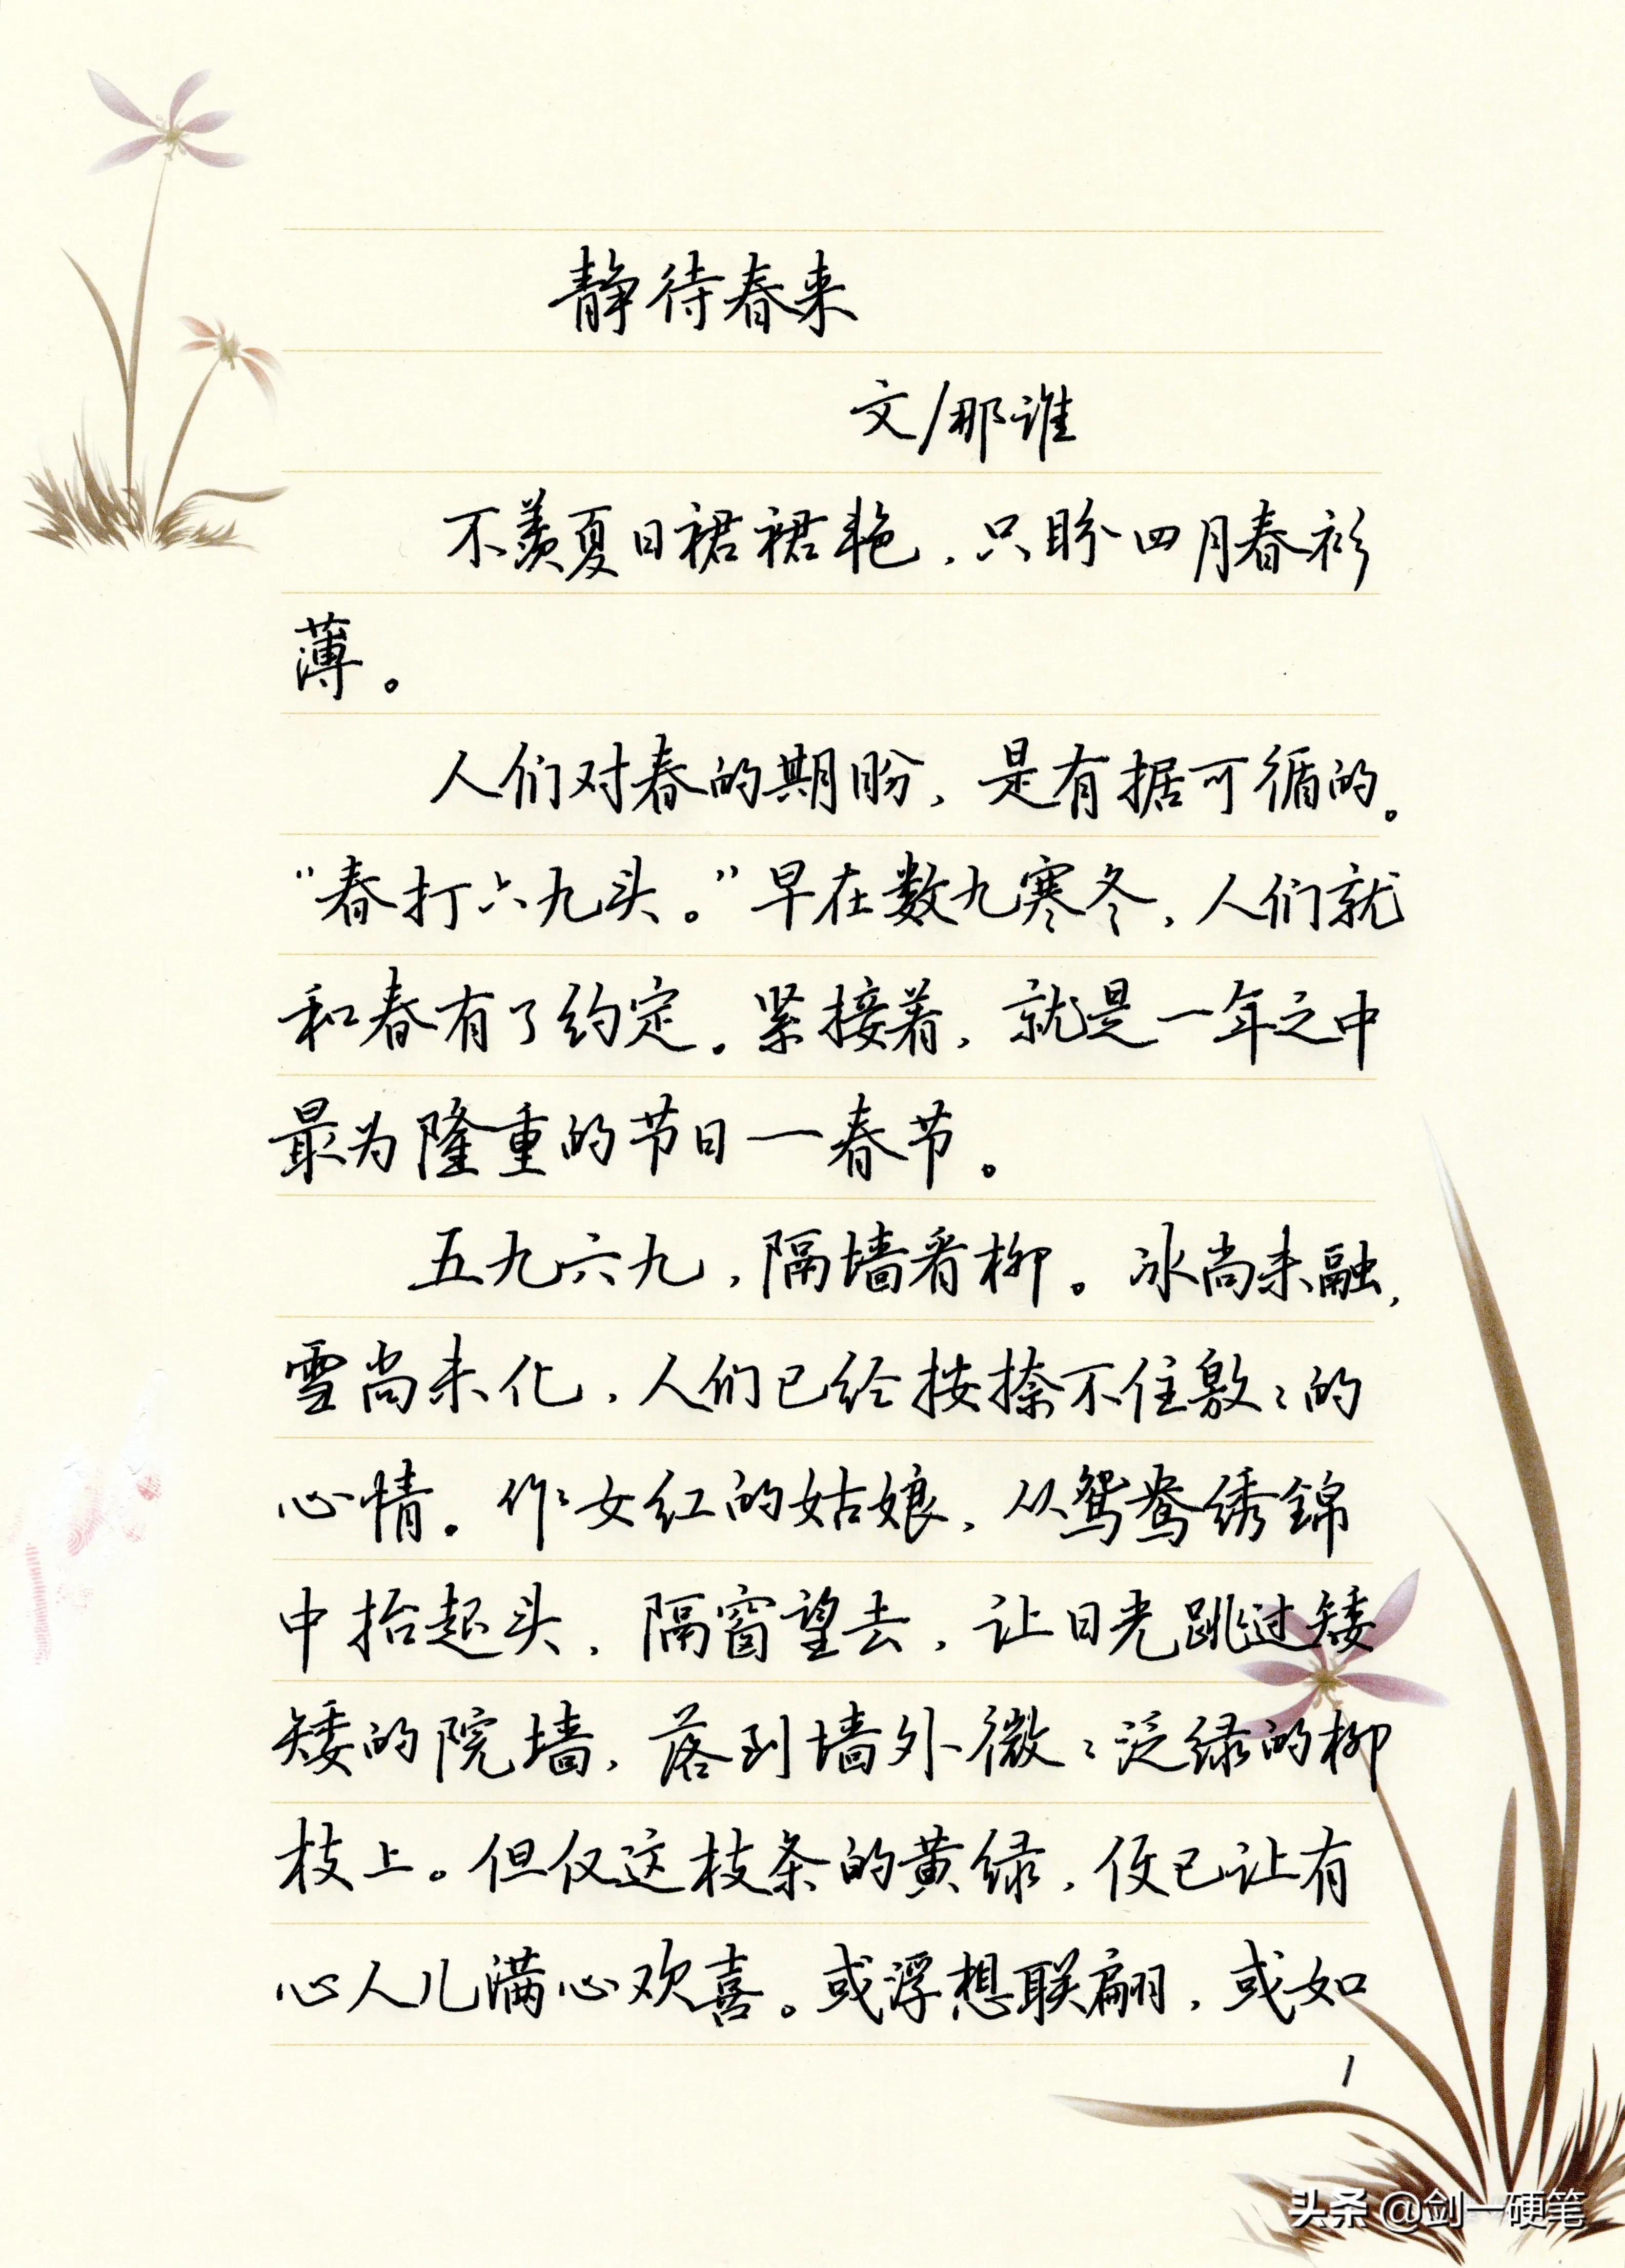 静待春来
文/那谁
不羡夏日裙裙艳，只盼四月春衫
薄。
人们对春的期盼，是有据可循的。
“春打六九头。”早在数九寒冬，人们就
和春有了约定。紧接着，就是一年之中
最为隆重的节日一春节。
五九六九，隔墙看柳。冰尚未融，
雪尚未化，人们已经按捺不住敫々的
心情。作女红的姑娘，从鸳鸯绣锦
中抬起头，隔窗望去，让日光跳过矮
矮的院墙，落到墙外微々泛绿的柳
枝上。但仅这枝条的黄绿，便已让有
心人儿满心欢喜。或浮想联翩，或如
1
头条 @剑一硬笔